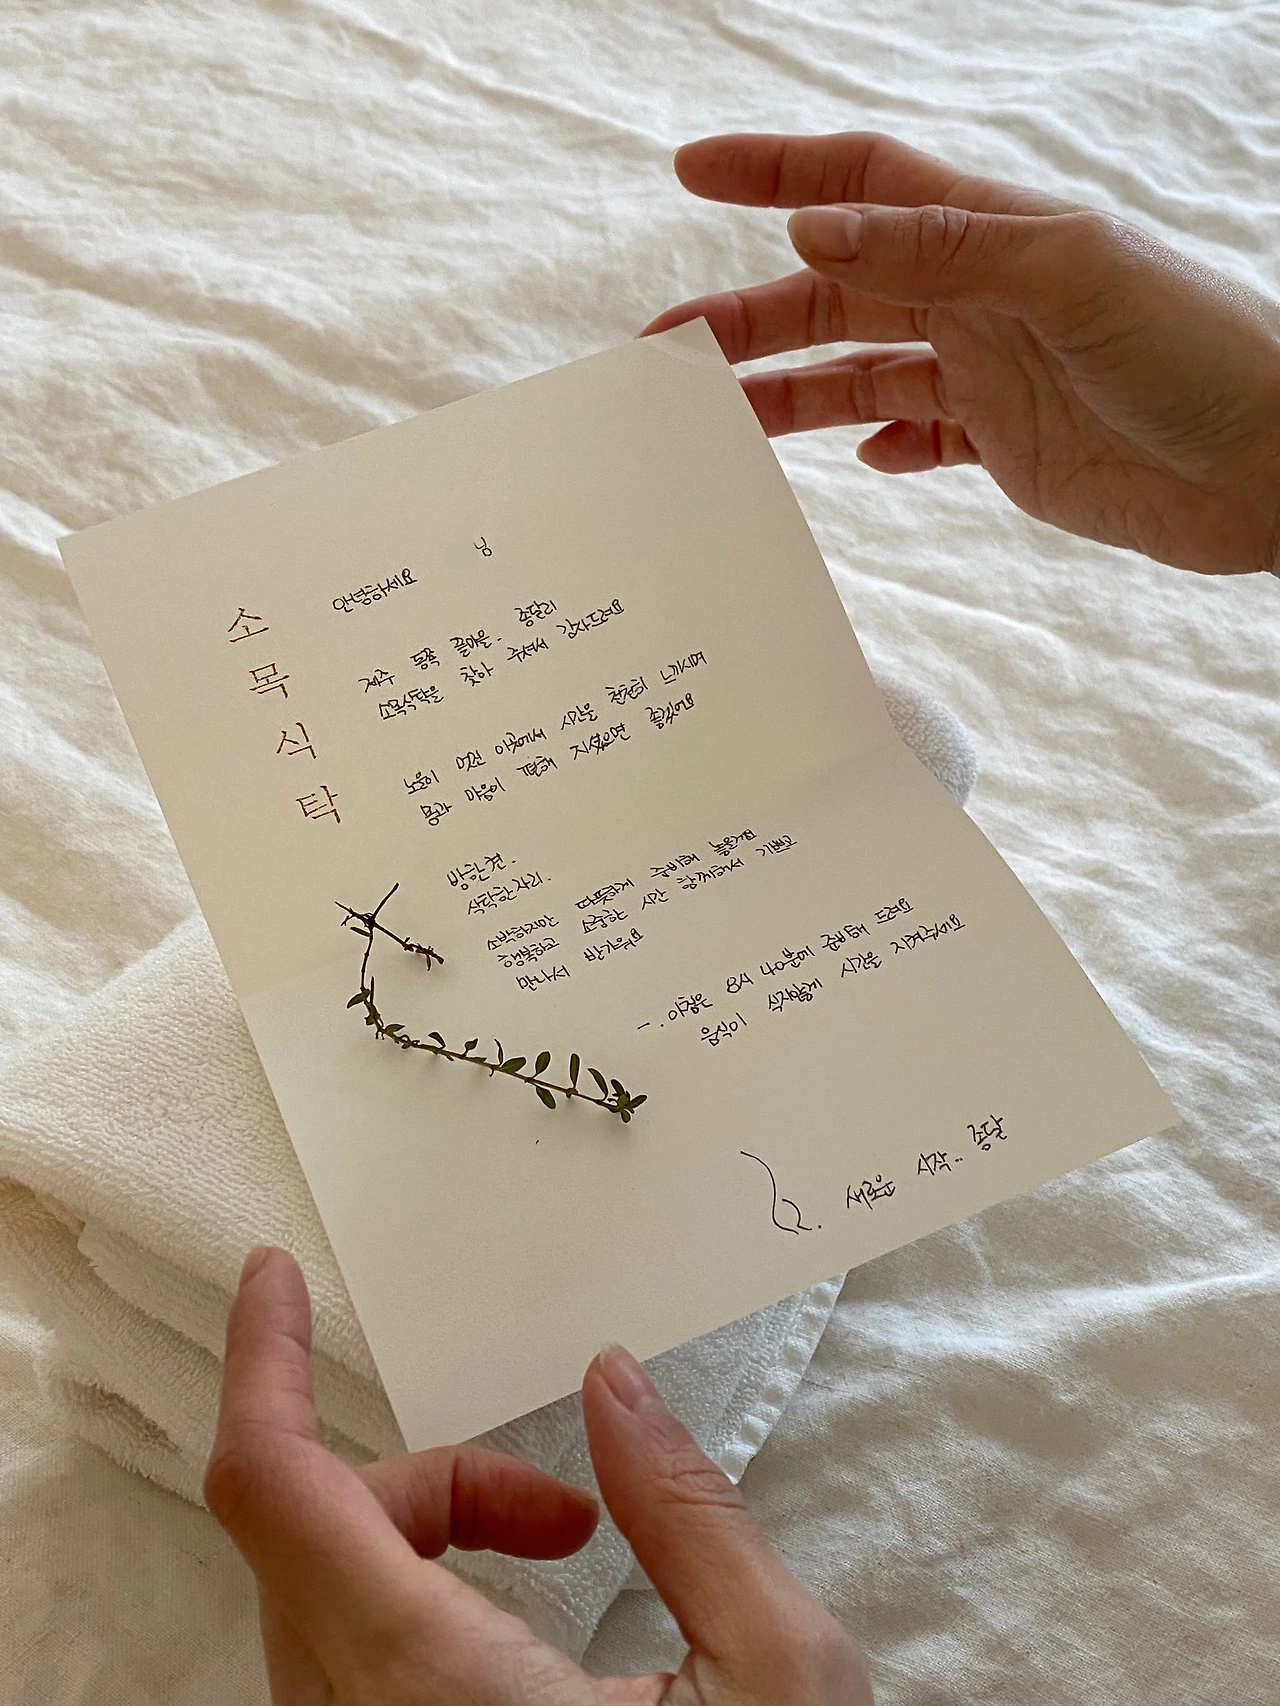 소
목
식
탁
님
안녕하세요
제주 동쪽 끝마을. 종달리
소목식탁을 찾아 주셔서 감사드려요
노을이 멋진 이곳에서 시간을 천천히 느끼시며
몸과 마음이 편해 지셨으면 좋겠어요
방한켠.
식탁한자리.
소박하지만 따뜻하게 준비해
행복하고 소중한 시간 함께해서 기쁘고
만나서 반가워요
-. 아침은 8시 40분에 준비해 드려요
음식이 식지않게 시간을 지켜주세요
새로운 시작.. 종달